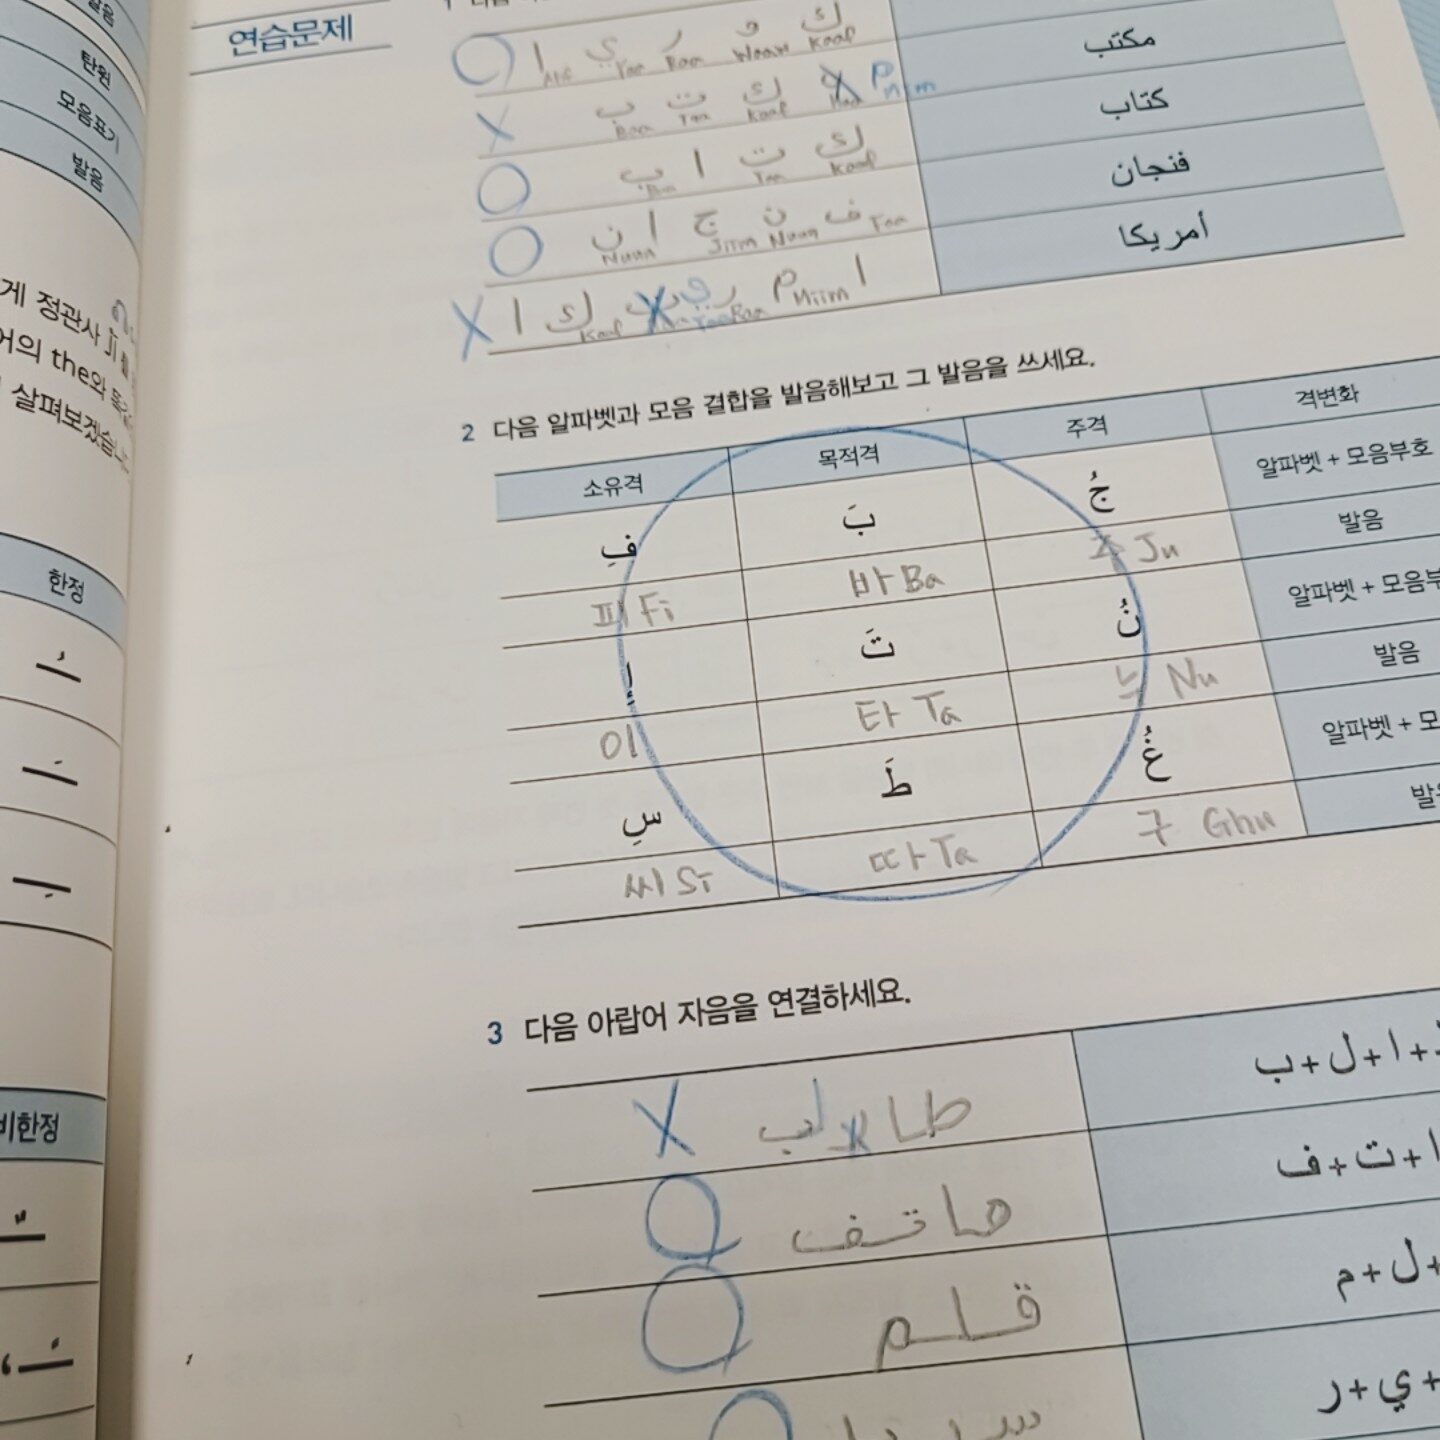 발음
탄원
모음표기
발음
게 정관사
어의 the와
살펴보겠습니
한정
비한정
연습문제
ا ي ر و ك
Yaa Raa Waaw Kaaf
مكتب
ب ت ك م
Baa Taa Kaaf Miim
كتاب
ب ا ت ك
Baa Taa Kaaf
فنجان
ن ا ج ن ف
Nuun Jiim Nuun Faa
أمريكا
ا ك ي ر م ا
Kaaf Yaa Raa Miim
2 다음 알파벳과 모음 결합을 발음해보고 그 발음을 쓰세요.
소유격 목적격 주격 격변화
فِ بَ جُ 알파벳 + 모음부호
피 Fi 바 Ba 주 Ju 발음
إِ تَ نُ 알파벳 + 모음부
이 타 Ta 누 Nu 발음
سِ طَ غُ 알파벳 + 모
씨 Si 따 Ta 구 Ghu 발음
3 다음 아랍어 자음을 연결하세요.
طالب + ا + ل + ب
هاتف ا + ت + ف
قلم + ل + م
+ ي + ر